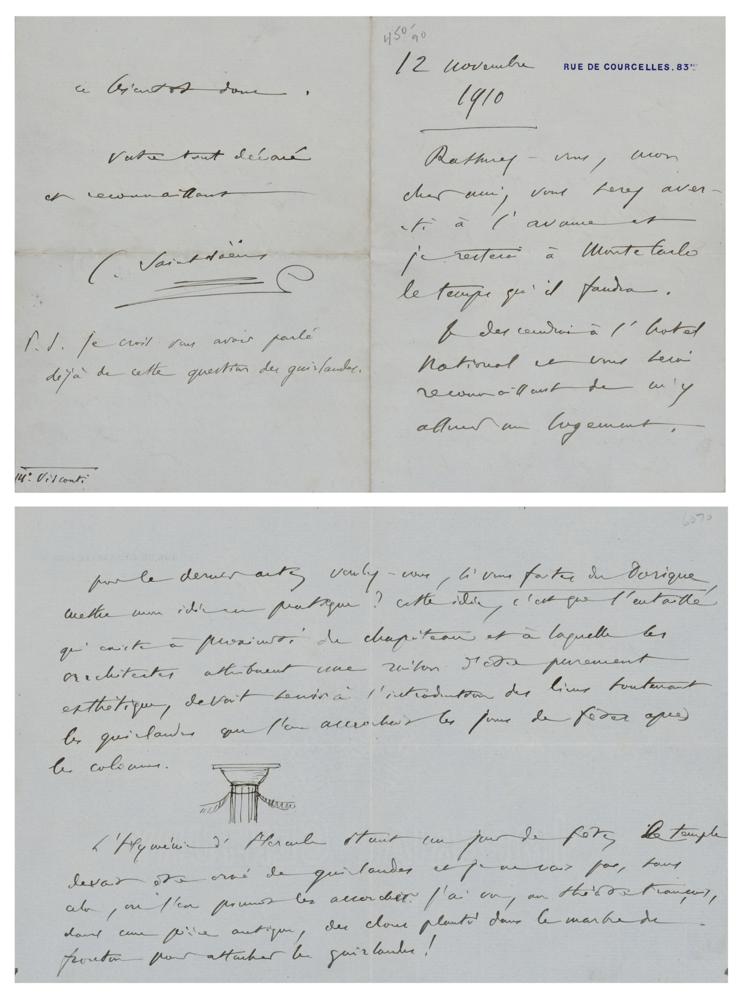 450 90
12 novembre
RUE DE COURCELLES. 83 bis
1910
Rassurez-vous, mon
cher ami, vous serez aver-
ti à l'avance et
je resterai à Monte Carlo
le temps qu'il faudra.
Je descendrai à l'hotel
National et vous serai
reconnaissant de m'y
assurer un logement.
pour le dernier acte, voulez-vous, si vous faites du Dorique,
mettre mon idée en pratique ? cette idée, c'est que l'entaille
qui existe à proximité du chapiteau et à laquelle les
architectes attribuent une raison d'être purement
esthétique, devait servir à l'introduction des liens soutenant
les guirlandes que l'on accrochait les jours de fêtes après
les colonnes.
L'Hyménée d'Hercule étant un jour de fête, le temple
devait être orné de guirlandes et je ne vois pas, sans
cela, où l'on pourrait les accrocher. J'ai vu, au théâtre français,
dans une pièce antique, des clous plantés dans le marbre du
fronton pour attacher les guirlandes !
à bientôt donc.
Votre tout dévoué
et reconnaissant
C. Saint-Saëns
P. S. Je crois vous avoir parlé
déjà de cette question des guirlandes.
Mr. Visconti